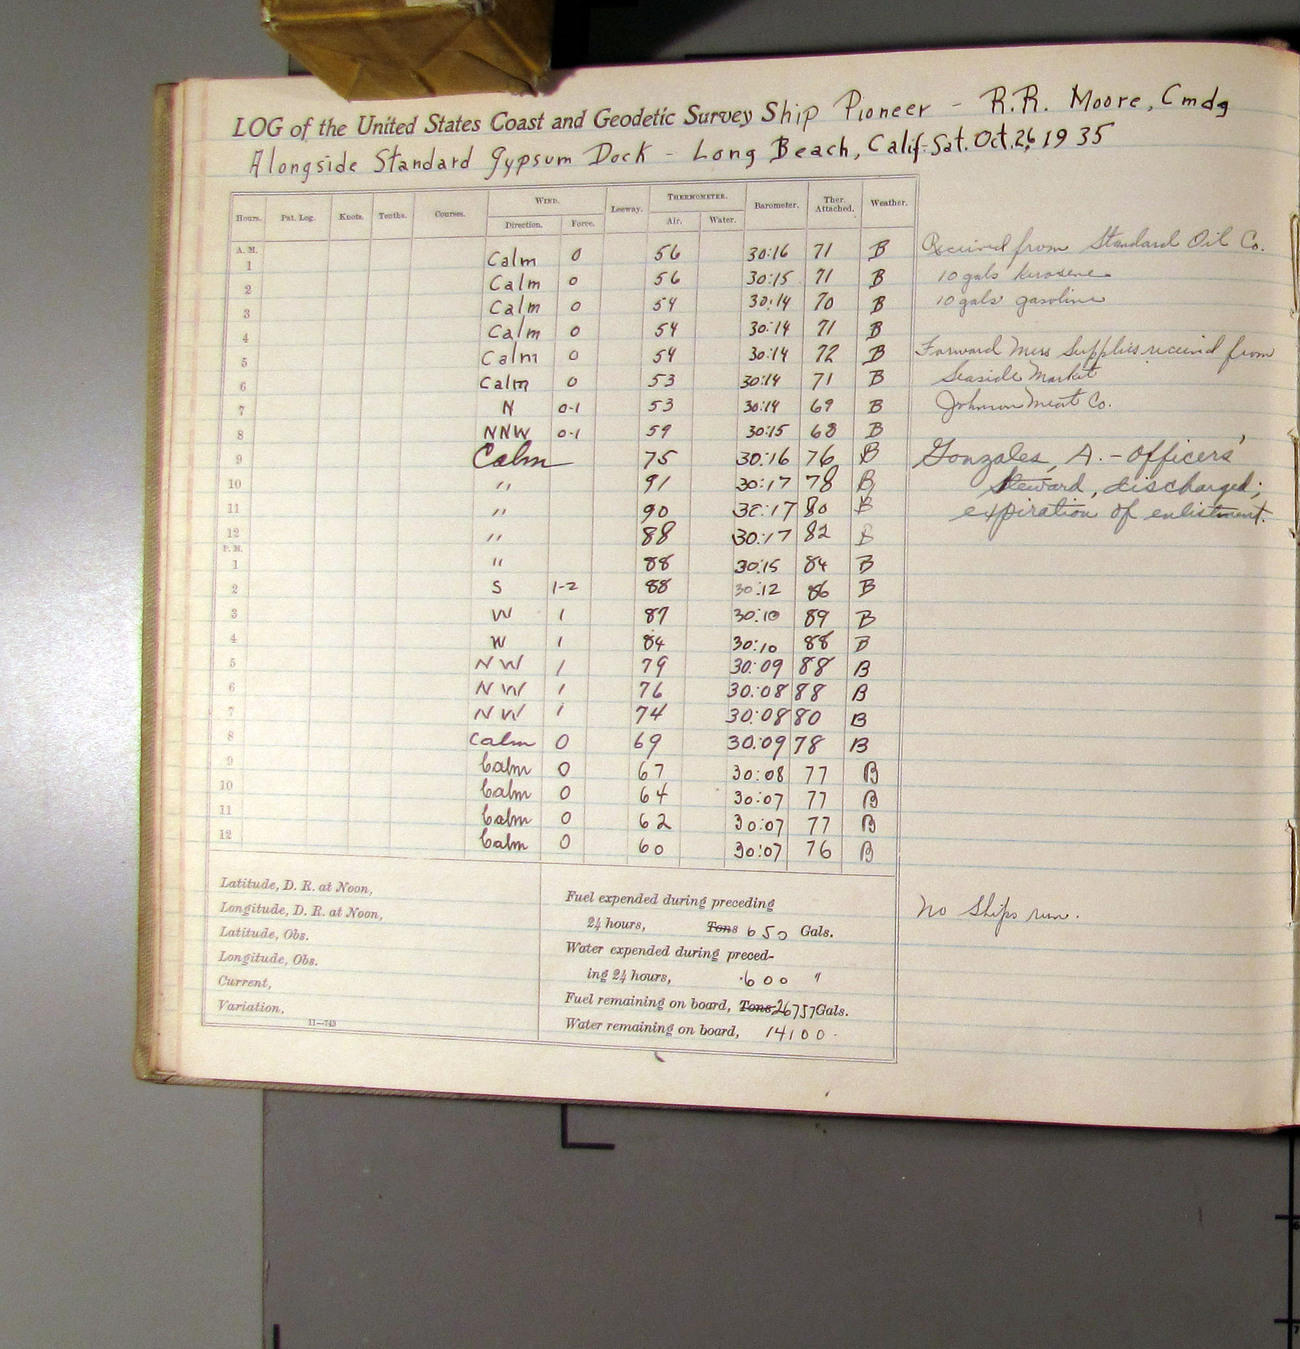 LOG of the United States Coast and Geodetic Survey Ship Pioneer - R.R. Moore, Cmdg
Alongside Standard Gypsum Dock - Long Beach, Calif. Sat. Oct. 26, 1935
Hours. Pat. Log. Knots. Tenths. Courses. WIND. Direction. Force. Leeway. THERMOMETER. Air. Water. Barometer. Ther. Attached. Weather.
A. M.
1 Calm 0 56 30:16 71 B Received from Standard Oil Co.
2 Calm 0 56 30:15 71 B 10 gals kerosene
3 Calm 0 54 30:14 70 B 10 gals gasoline
4 Calm 0 54 30:14 71 B
5 Calm 0 54 30:14 72 B Forward Mess Supplies received from
6 Calm 0 53 30:14 71 B Seaside Market
7 N 0-1 53 30:14 69 B Johnson Meat Co.
8 NNW 0-1 59 30:15 68 B
9 Calm 75 30:16 76 B Gonzales, A. - Officers'
10 " 91 30:17 78 B Steward, discharged;
11 " 90 30:17 80 B expiration of enlistment.
12 " 88 30:17 82 B
P. M.
1 " 88 30:15 84 B
2 S 1-2 88 30:12 86 B
3 W 1 87 30:10 89 B
4 W 1 84 30:10 88 B
5 NW 1 79 30:09 88 B
6 NW 1 76 30:08 88 B
7 NW 1 74 30:08 80 B
8 Calm 0 69 30:09 78 B
9 Calm 0 67 30:08 77 B
10 Calm 0 64 30:07 77 B
11 Calm 0 62 30:07 77 B
12 Calm 0 60 30:07 76 B
Latitude, D. R. at Noon,
Longitude, D. R. at Noon,
Latitude, Obs.
Longitude, Obs.
Current,
Variation,
11—743
Fuel expended during preceding
24 hours, Tons 650 Gals.
Water expended during preced-
ing 24 hours, 600 "
Fuel remaining on board, Tons 26757 Gals.
Water remaining on board, 14100
No ships run.